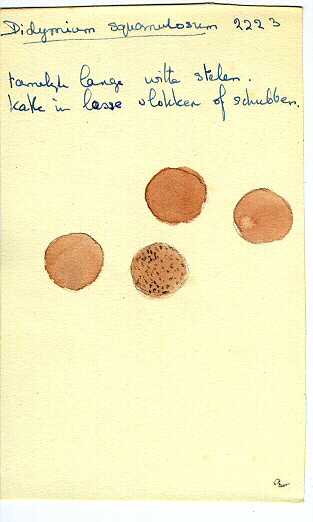 Didymium squamulosum 2223
tamelijk lange witte stelen.
kalk in losse vlokken of schubben.